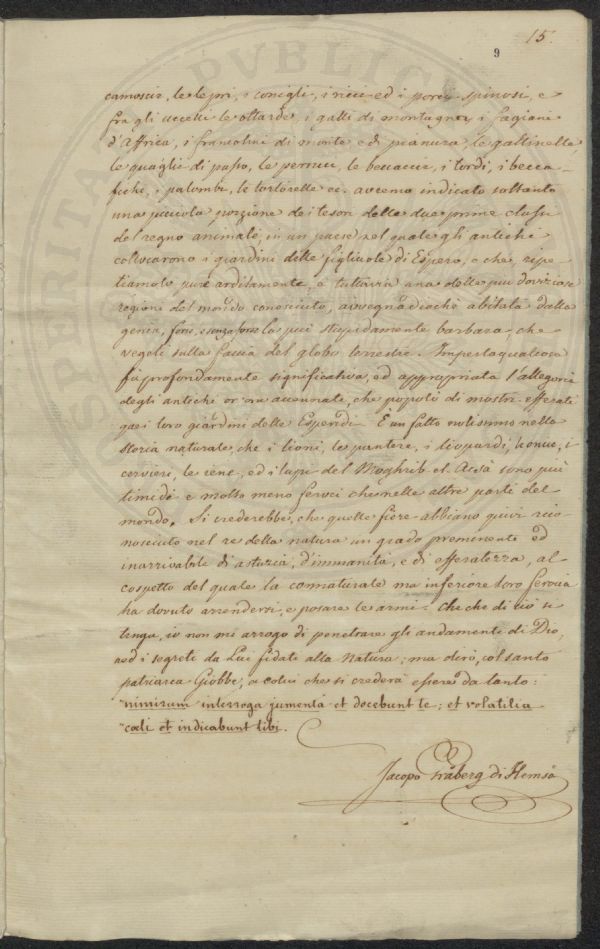 15.
9
camoscie, le lepri, i conigli, i ricci ed i porci-spinosi, e
fra gli uccelli le ottarde, i galli di montagna, i fagiani
d'Affrica, i francolini di monte e di pianura, le gallinelle,
le quaglie di passo, le pernici, le beccaccie, i tordi, i becca-
fichi, i palombi, le tortorelle ec. avremo indicato soltanto
una piccola porzione dei tesori delle due prime classi
del regno animale, in un paese nel quale gli antichi
collocarono i giardini delle figliuole di Espero, e che, ripe-
tiamolo pure arditamente, è tuttavia una delle più doviziose
regioni del mondo conosciuto, avvegnadiochè abitata dalla
genia, forse, e senza forse la più stupidamente barbara, che
vegeti sulla faccia del globo terrestre. In questa qualcosa
fu profondamente significativa, ed appropriata l'allegoria
degli antichi or ora accennata, che popolò di mostri efferati
quei loro giardini delle Esperidi. È un fatto notissimo nella
storia naturale, che i lioni, le pantere, i liopardi, le onze, i
cervieri, le iene, ed i lupi del Moghrib el Acsà sono più
timidi e molto meno feroci che nelle altre parti del
mondo. Si crederebbe, che quelle fiere abbiano quivi rico-
nosciuto nel re della natura un grado preminente ed
inarrivabile di astuzia, d'immanità, e di efferatezza, al
cospetto del quale la connaturale ma inferiore loro ferocia
ha dovuto arrendersi, e posare le armi. Che che di ciò si
tenga, io non mi arrogo di penetrare gli andamenti di Dio,
ned i segreti da Lui fidati alla Natura; ma dirò, col santo
patriarca Giobbe, a colui che si crederà essere da tanto:
"nimirum interroga jumenta et docebunt te; et volatilia
"cœli et indicabunt tibi.
Jacopo Gråberg di Hemsö